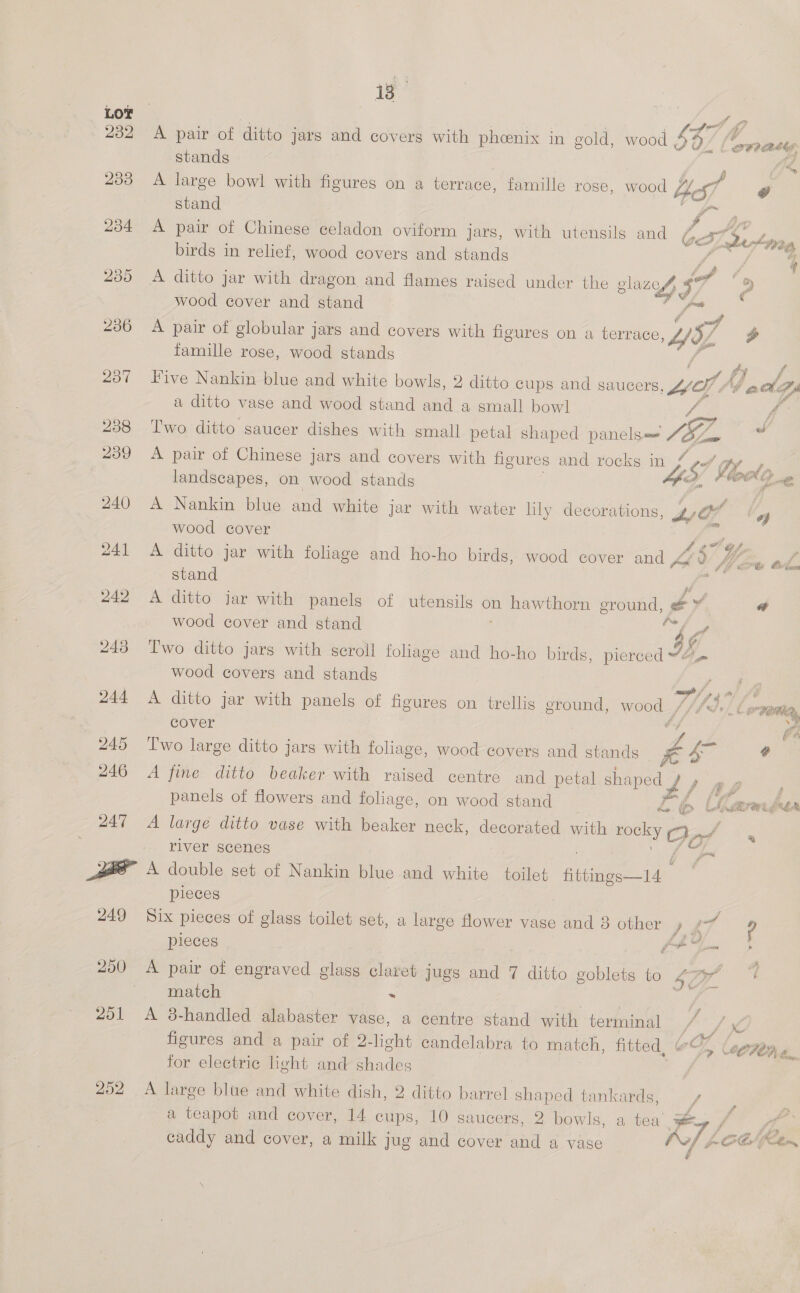 13
LOT
232 A pair of ditto jars and covers with phœnix in gold, wood
stands
233 A large bowl with figures on a terrace, famille rose, wood
stand
234 A pair of Chinese celadon oviform jars, with utensils and
birds in relief, wood covers and stands
235 A ditto jar with dragon and flames raised under the glaze,
wood cover and stand
236 A pair of globular jars and covers with figures on a terrace,
famille rose, wood stands
237 Five Nankin blue and white bowls, 2 ditto cups and saucers,
a ditto vase and wood stand and a small bowl
238 Two ditto saucer dishes with small petal shaped panels
239 A pair of Chinese jars and covers with figures and rocks in
landscapes, on wood stands
240 A Nankin blue and white jar with water lily decorations,
wood cover
241 A ditto jar with foliage and ho-ho birds, wood cover and
stand
242 A ditto jar with panels of utensils on hawthorn ground,
wood cover and stand
243 Two ditto jars with scroll foliage and ho-ho birds, pierced
wood covers and stands
244 A ditto jar with panels of figures on trellis ground, wood
cover
245 Two large ditto jars with foliage, wood covers and stands
246 A fine ditto beaker with raised centre and petal shaped
panels of flowers and foliage, on wood stand
247 A large ditto vase with beaker neck, decorated with rocky
river scenes
A double set of Nankin blue and white toilet fittings—14
pieces
249 Six pieces of glass toilet set, a large flower vase and 3 other
pieces
250 A pair of engraved glass claret jugs and 7 ditto goblets to
match
251 A 3-handled alabaster vase, a centre stand with terminal
figures and a pair of 2-light candelabra to match, fitted
for electric light and shades
252 A large blue and white dish, 2 ditto barrel shaped tankards,
a teapot and cover, 14 cups, 10 saucers, 2 bowls, a tea
caddy and cover, a milk jug and cover and a vase